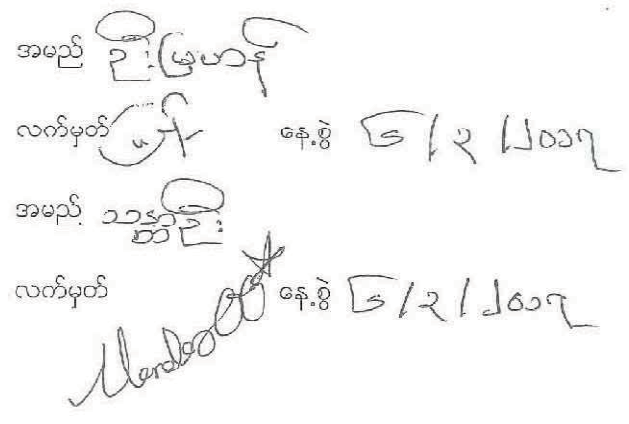 အမည် ဦးမြဟန်
လက်မှတ် နေ့စွဲ ၆/၃/၂၀၁၇
အမည် သန္တာဦး
လက်မှတ် နေ့စွဲ ၆/၃/၂၀၁၇